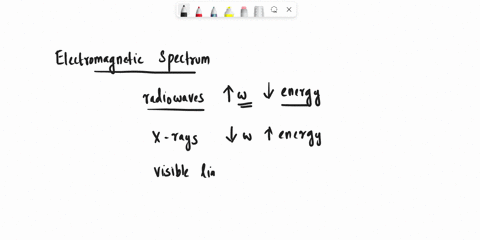 Electromagnetic Spectrum
radiowaves ↑ w ↓ energy
X-rays ↓ w ↑ energy
Visible